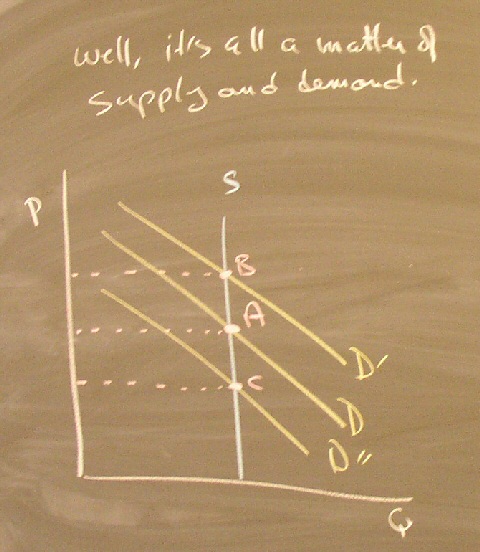 well, it's all a matter of
supply and demand.
S
P
B
A
C
D'
D
D"
Q